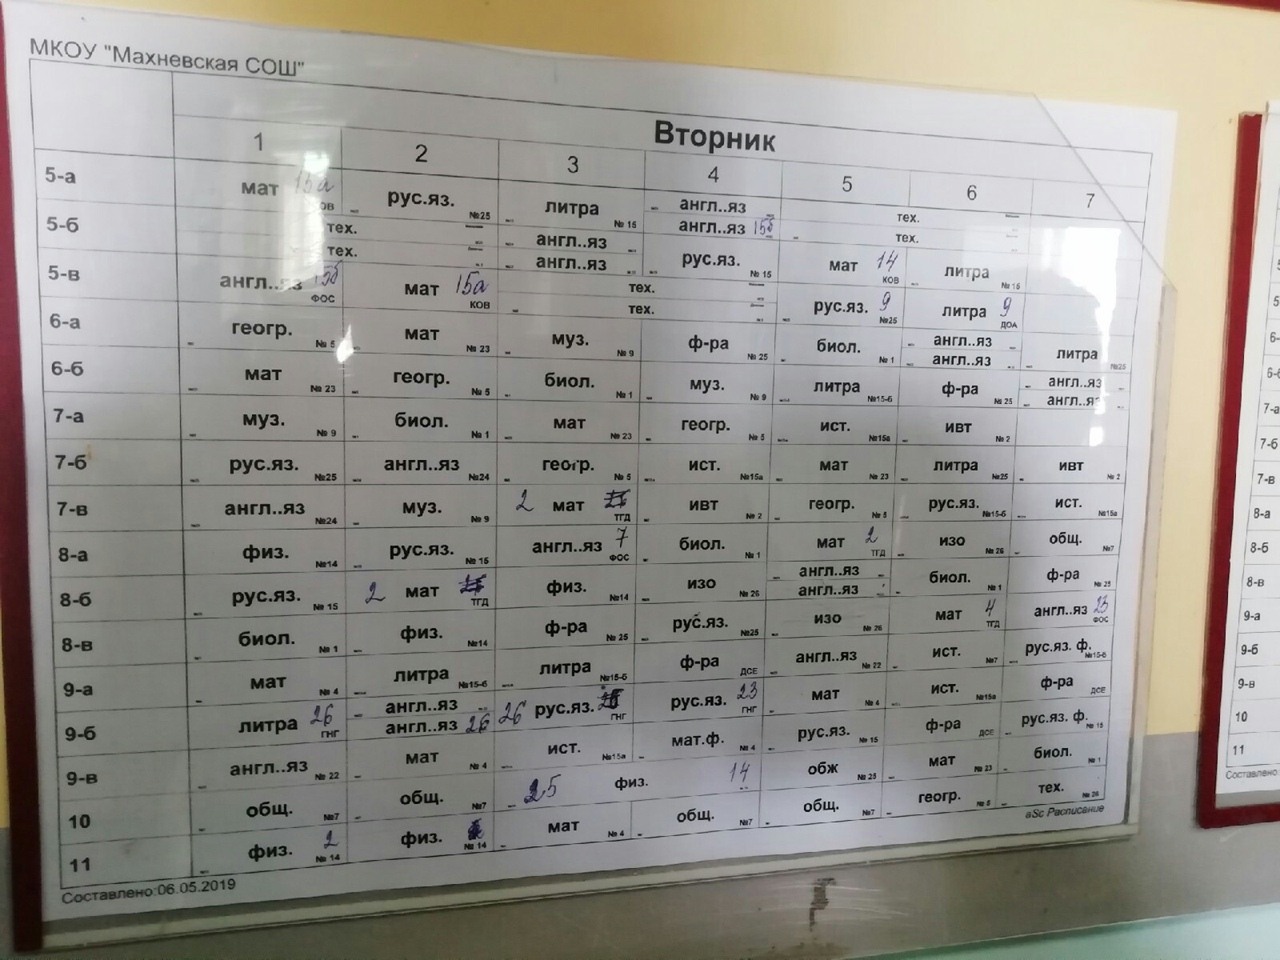 МКОУ "Махневская СОШ"
Вторник
1 2 3 4 5 6 7
5-а мат 15а КОВ рус.яз. №25 литра № 15 англ..яз англ..яз 15б тех. тех.
5-б тех. тех. англ..яз англ..яз рус.яз. № 15 мат 14 КОВ литра № 15
5-в англ..яз 15б ФОС мат 15а КОВ тех. тех. рус.яз. 9 №25 литра 9 ДОА
6-а геогр. № 5 мат № 23 муз. № 9 ф-ра № 25 биол. № 1 англ..яз англ..яз литра №25
6-б мат № 23 геогр. № 5 биол. № 1 муз. № 9 литра №15-б ф-ра № 25 англ..яз англ..яз
7-а муз. № 9 биол. № 1 мат № 23 геогр. № 5 ист. №15а ивт № 2
7-б рус.яз. №25 англ..яз №24 геогр. № 5 ист. №15а мат № 23 литра №25 ивт № 2
7-в англ..яз №24 муз. № 9 2 мат ТГД ивт № 2 геогр. № 5 рус.яз. №15-б ист. №15а
8-а физ. №14 рус.яз. № 15 англ..яз 7 ФОС биол. № 1 мат 2 ТГД изо № 26 общ. №7
8-б рус.яз. № 15 2 мат ТГД физ. №14 изо № 26 англ..яз англ..яз биол. № 1 ф-ра № 25
8-в биол. № 1 физ. №14 ф-ра № 25 рус.яз. №25 изо № 26 мат 4 ТГД англ..яз 23 ФОС
9-а мат № 4 литра №15-б литра №15-б ф-ра ДСЕ англ..яз № 22 ист. №7 рус.яз. ф. №15-б
9-б литра 26 ГНГ англ..яз англ..яз 26 26 рус.яз. ГНГ рус.яз. 23 ГНГ мат № 4 ист. №15а ф-ра ДСЕ
9-в англ..яз № 22 мат № 4 ист. №15а мат.ф. № 4 рус.яз. № 15 ф-ра ДСЕ рус.яз. ф. № 15
10 общ. №7 общ. №7 25 физ. 14 обж № 25 мат № 23 биол. № 1
11 физ. 2 № 14 физ. № 14 мат № 4 общ. №7 общ. №7 геогр. № 5 тех. № 26
Составлено:06.05.2019
aSc Расписание
5
5
6-а
6-б
7-а
7-б
7-в
8-а
8-б
8-в
9-а
9-б
9-в
10
11
Составлено